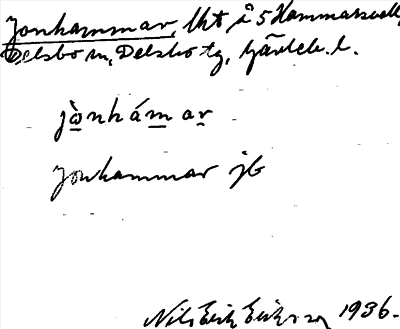 Jonhammar, lht å 5 Hammarsvall,
Delsbo sn, Delsbo tg, Gävleb. l.
jònhámar
Jonhammar jb
Nils Erik Eriksson 1936.